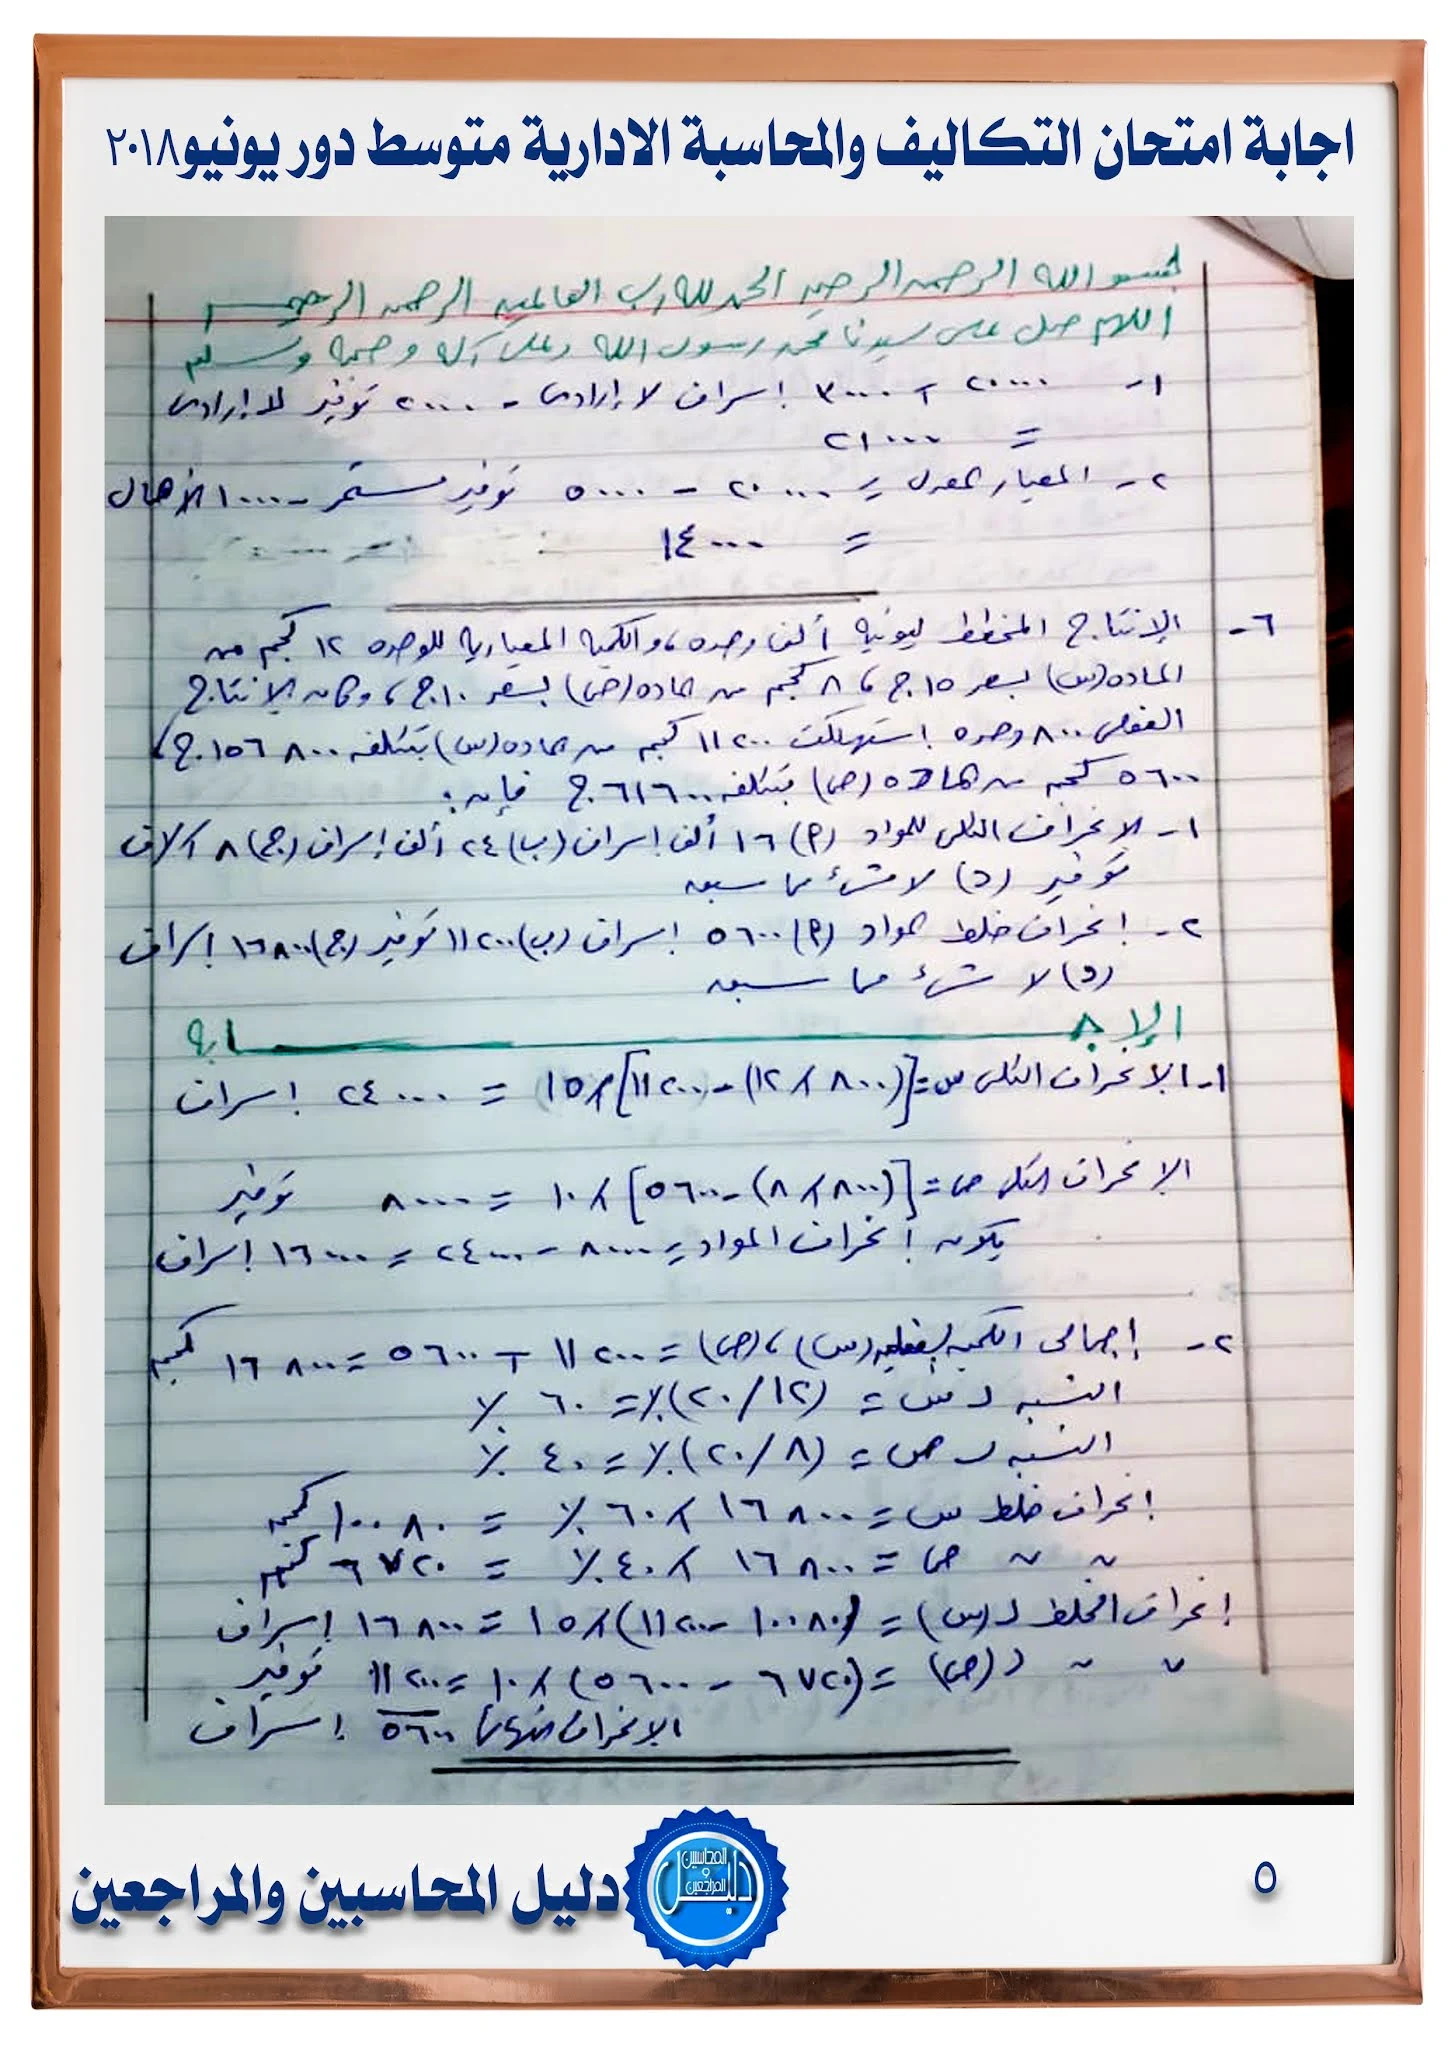 اجابة امتحان التكاليف والمحاسبة الادارية متوسط دور يونيو٢٠١٨
بسم الله الرحمن الرحيم الحمد لله رب العالمين الرحمن الرحيم
اللهم صل على سيدنا محمد رسول الله وعلى آله وصحبه وسلم
١- ٢٠٠٠٠ + ٣٠٠٠ إسراف لا إرادى - ٢٠٠٠ توفير لا إرادى
= ٢١٠٠٠
٢- المعيار المعدل = ٢٠٠٠٠ - ٥٠٠٠ توفير مستمر - ١٠٠٠ الإهمال
= ١٤٠٠٠
٦- الإنتاج المخطط ليونية ألف وحده، والكمية المعيارية للوحده ١٢ كجم من
الماده (س) بسعر ١٥ ج، ٨ كجم من الماده (ص) بسعر ١٠ ج، وكان الإنتاج
الفعلى ٨٠٠ وحده استهلكت ١١٢٠٠ كجم من الماده (س) بتكلفه ١٥٦٨٠٠ ج،
٥٦٠٠ كجم من الماده (ص) بتكلفه ٦١٦٠٠ ج فإن:
١- الإنحراف الكلى للمواد (م) ١٦ ألف إسراف (ب) ٢٤ ألف إسراف (ج) ٨ آلاف
توفير (د) لا شئ مما سبق
٢- إنحراف خلط المواد (م) ٥٦٠٠ إسراف (ب) ١١٢٠٠ توفير (ج) ١٦٨٠٠ إسراف
(د) لا شئ مما سبق
الإجابة
١- الإنحراف الكلى س = [(٨٠٠ × ١٢) - ١١٢٠٠] × ١٥ = ٢٤٠٠٠ إسراف
الإنحراف الكلى ص = [(٨٠٠ × ٨) - ٥٦٠٠] × ١٠ = ٨٠٠٠ توفير
يكون إنحراف المواد = ٨٠٠٠ - ٢٤٠٠٠ = ١٦٠٠٠ إسراف
٢- إجمالى الكمية الفعلية (س)، (ص) = ١١٢٠٠ + ٥٦٠٠ = ١٦٨٠٠ كجم
النسبه لـ س = (١٢/٢٠)٪ = ٦٠ ٪
النسبه لـ ص = (٨/٢٠)٪ = ٤٠ ٪
إنحراف خلط س = ١٦٨٠٠ × ٦٠ ٪ = ١٠٠٨٠ كجم
〃 〃 ص = ١٦٨٠٠ × ٤٠ ٪ = ٦٧٢٠ كجم
إنحراف الخلط لـ (س) = (١٠٠٨٠ - ١١٢٠٠) × ١٥ = ١٦٨٠٠ إسراف
〃 〃 لـ (ص) = (٦٧٢٠ - ٥٦٠٠) × ١٠ = ١١٢٠٠ توفير
الإنحراف النهائى ٥٦٠٠ إسراف
دليل المحاسبين والمراجعين
دليل المحاسبين و المراجعين
٥